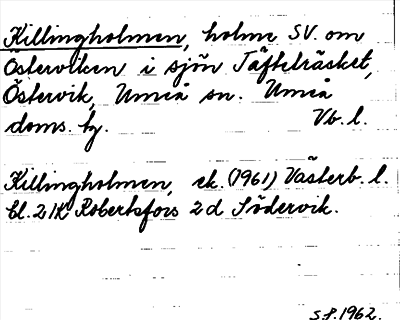 Killingholmen, holme SV. om
Österviken i sjön Täfteträsket,
Östervik, Umeå sn. Umeå
doms. hg. Vb. l.
Killingholmen, ek. (1961) Västerb. l.
bl. 21K Robertsfors 2 d Södervik.
S.F. 1962.